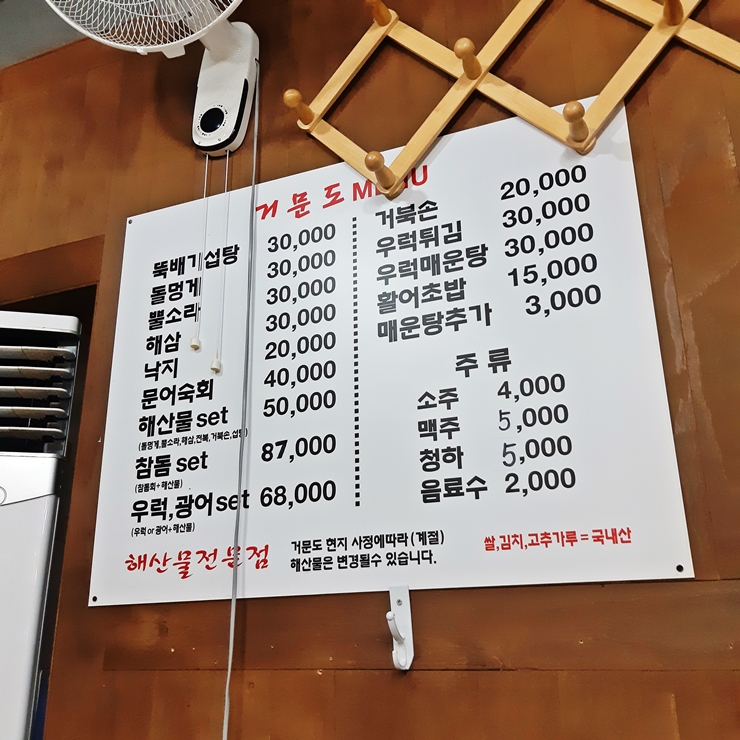 거문도 MENU
뚝배기섭탕 30,000
돌멍게 30,000
뿔소라 30,000
해삼 30,000
낙지 20,000
문어숙회 40,000
해산물 set 50,000
(돌멍게,뿔소라,해삼,전복,거북손,섭탕)
참돔 set 87,000
(참돔회+해산물)
우럭,광어set 68,000
(우럭 or 광어+해산물)
거북손 20,000
우럭튀김 30,000
우럭매운탕 30,000
활어초밥 15,000
매운탕추가 3,000
주 류
소주 4,000
맥주 5,000
청하 5,000
음료수 2,000
해산물전문점
거문도 현지 사정에따라 (계절)
해산물은 변경될수 있습니다.
쌀,김치,고추가루 = 국내산